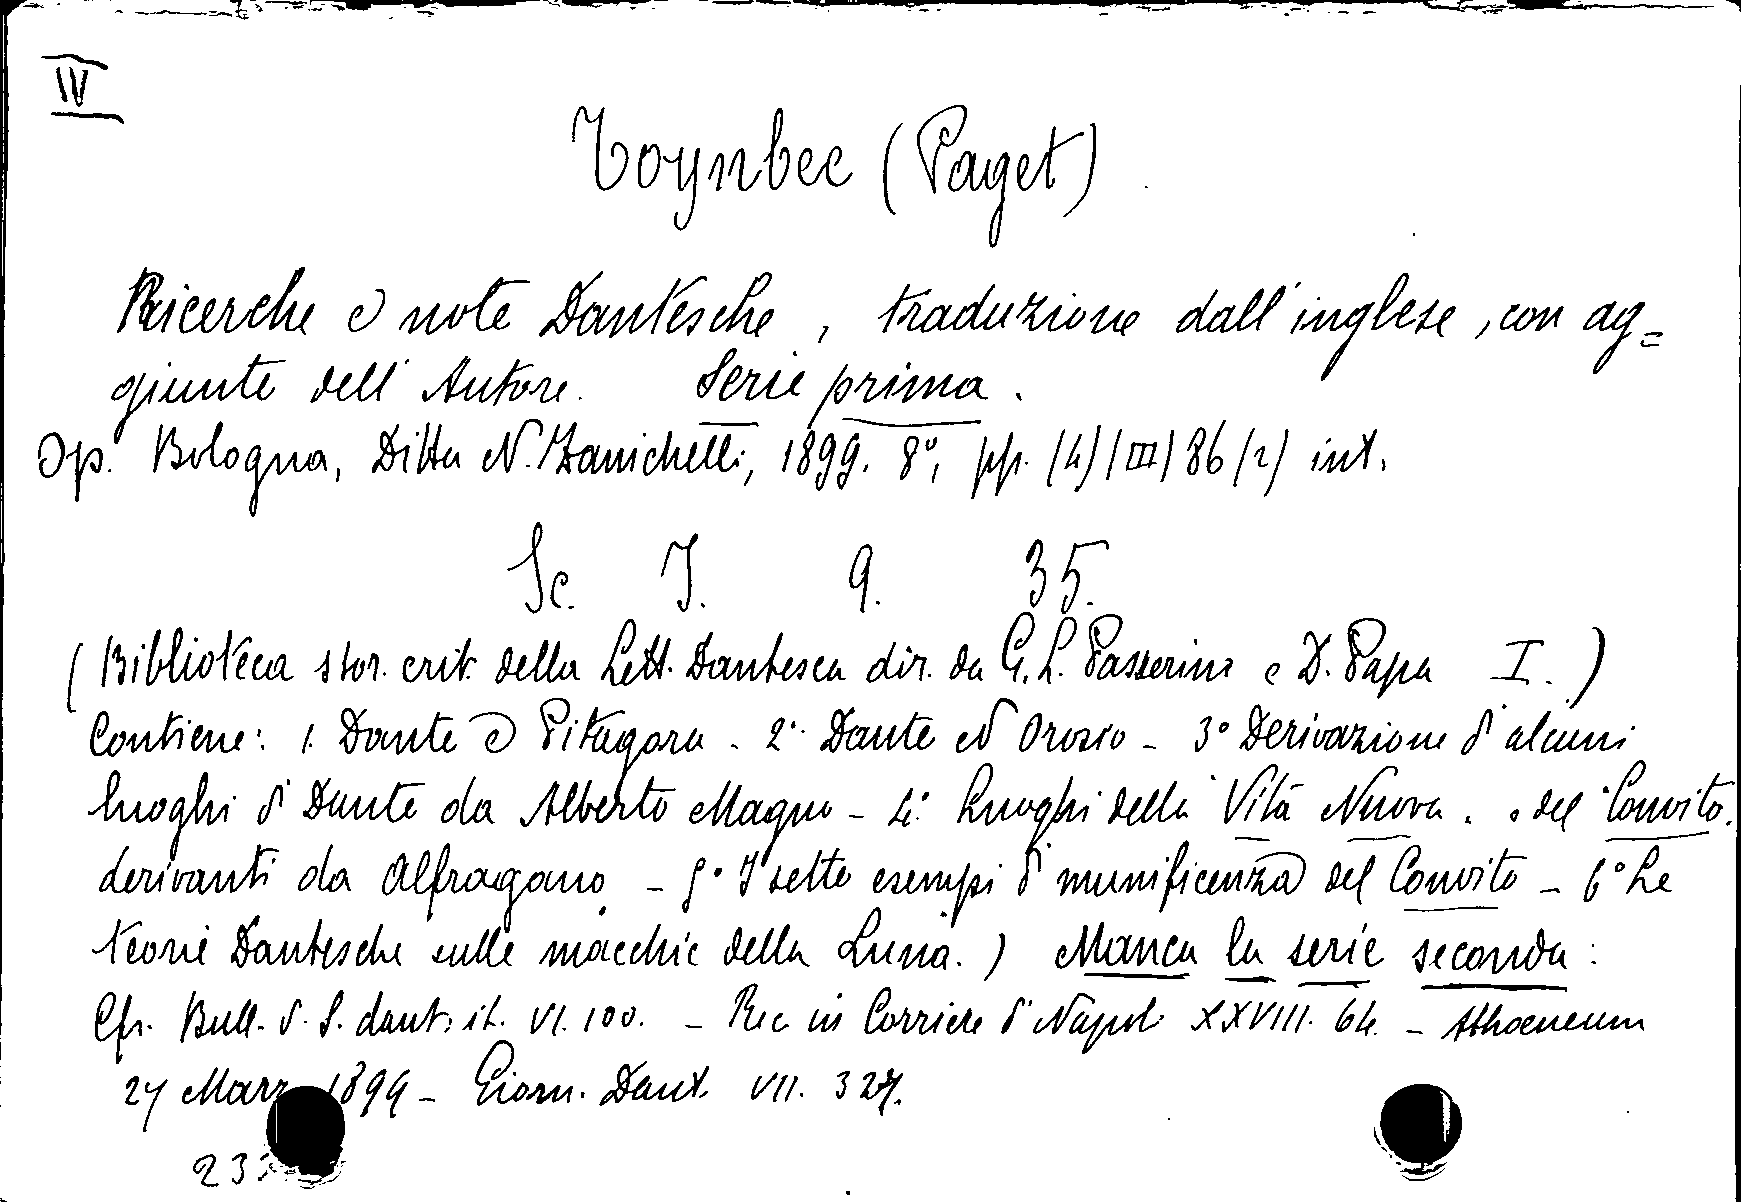 IV
Toynbee (Paget)
Ricerche e note Dantesche, traduzione dall'inglese, con ag=
giunte dell'Autore. Serie prima.
Op. Bologna, Ditta N. Zanichelli, 1899. 8°, pp. (4) (III) 86 (2) int.
Sc. I. 9. 35.
(Biblioteca stor. crit. della Lett. Dantesca dir. da G. L. Passerini e D. Papa I.)
Contiene: 1. Dante e Pitagora - 2° Dante ed Orosio - 3° Derivazione d'alcuni
luoghi d' Dante da Alberto Magno - 4° Luoghi della Vita Nuova e del Convito
derivanti da Alfragano - 5° I sette esempi d' munificenza del Convito - 6° Le
teorie Dantesche sulle macchie della Luna.) Manca la serie seconda:
Cfr. Bull. d. S. dant. it. VI. 100. - Rec in Corriere d' Napol XXVIII. 64. - Athoeneum
27 Marz 1899 - Giorn. Dant. VII. 327.